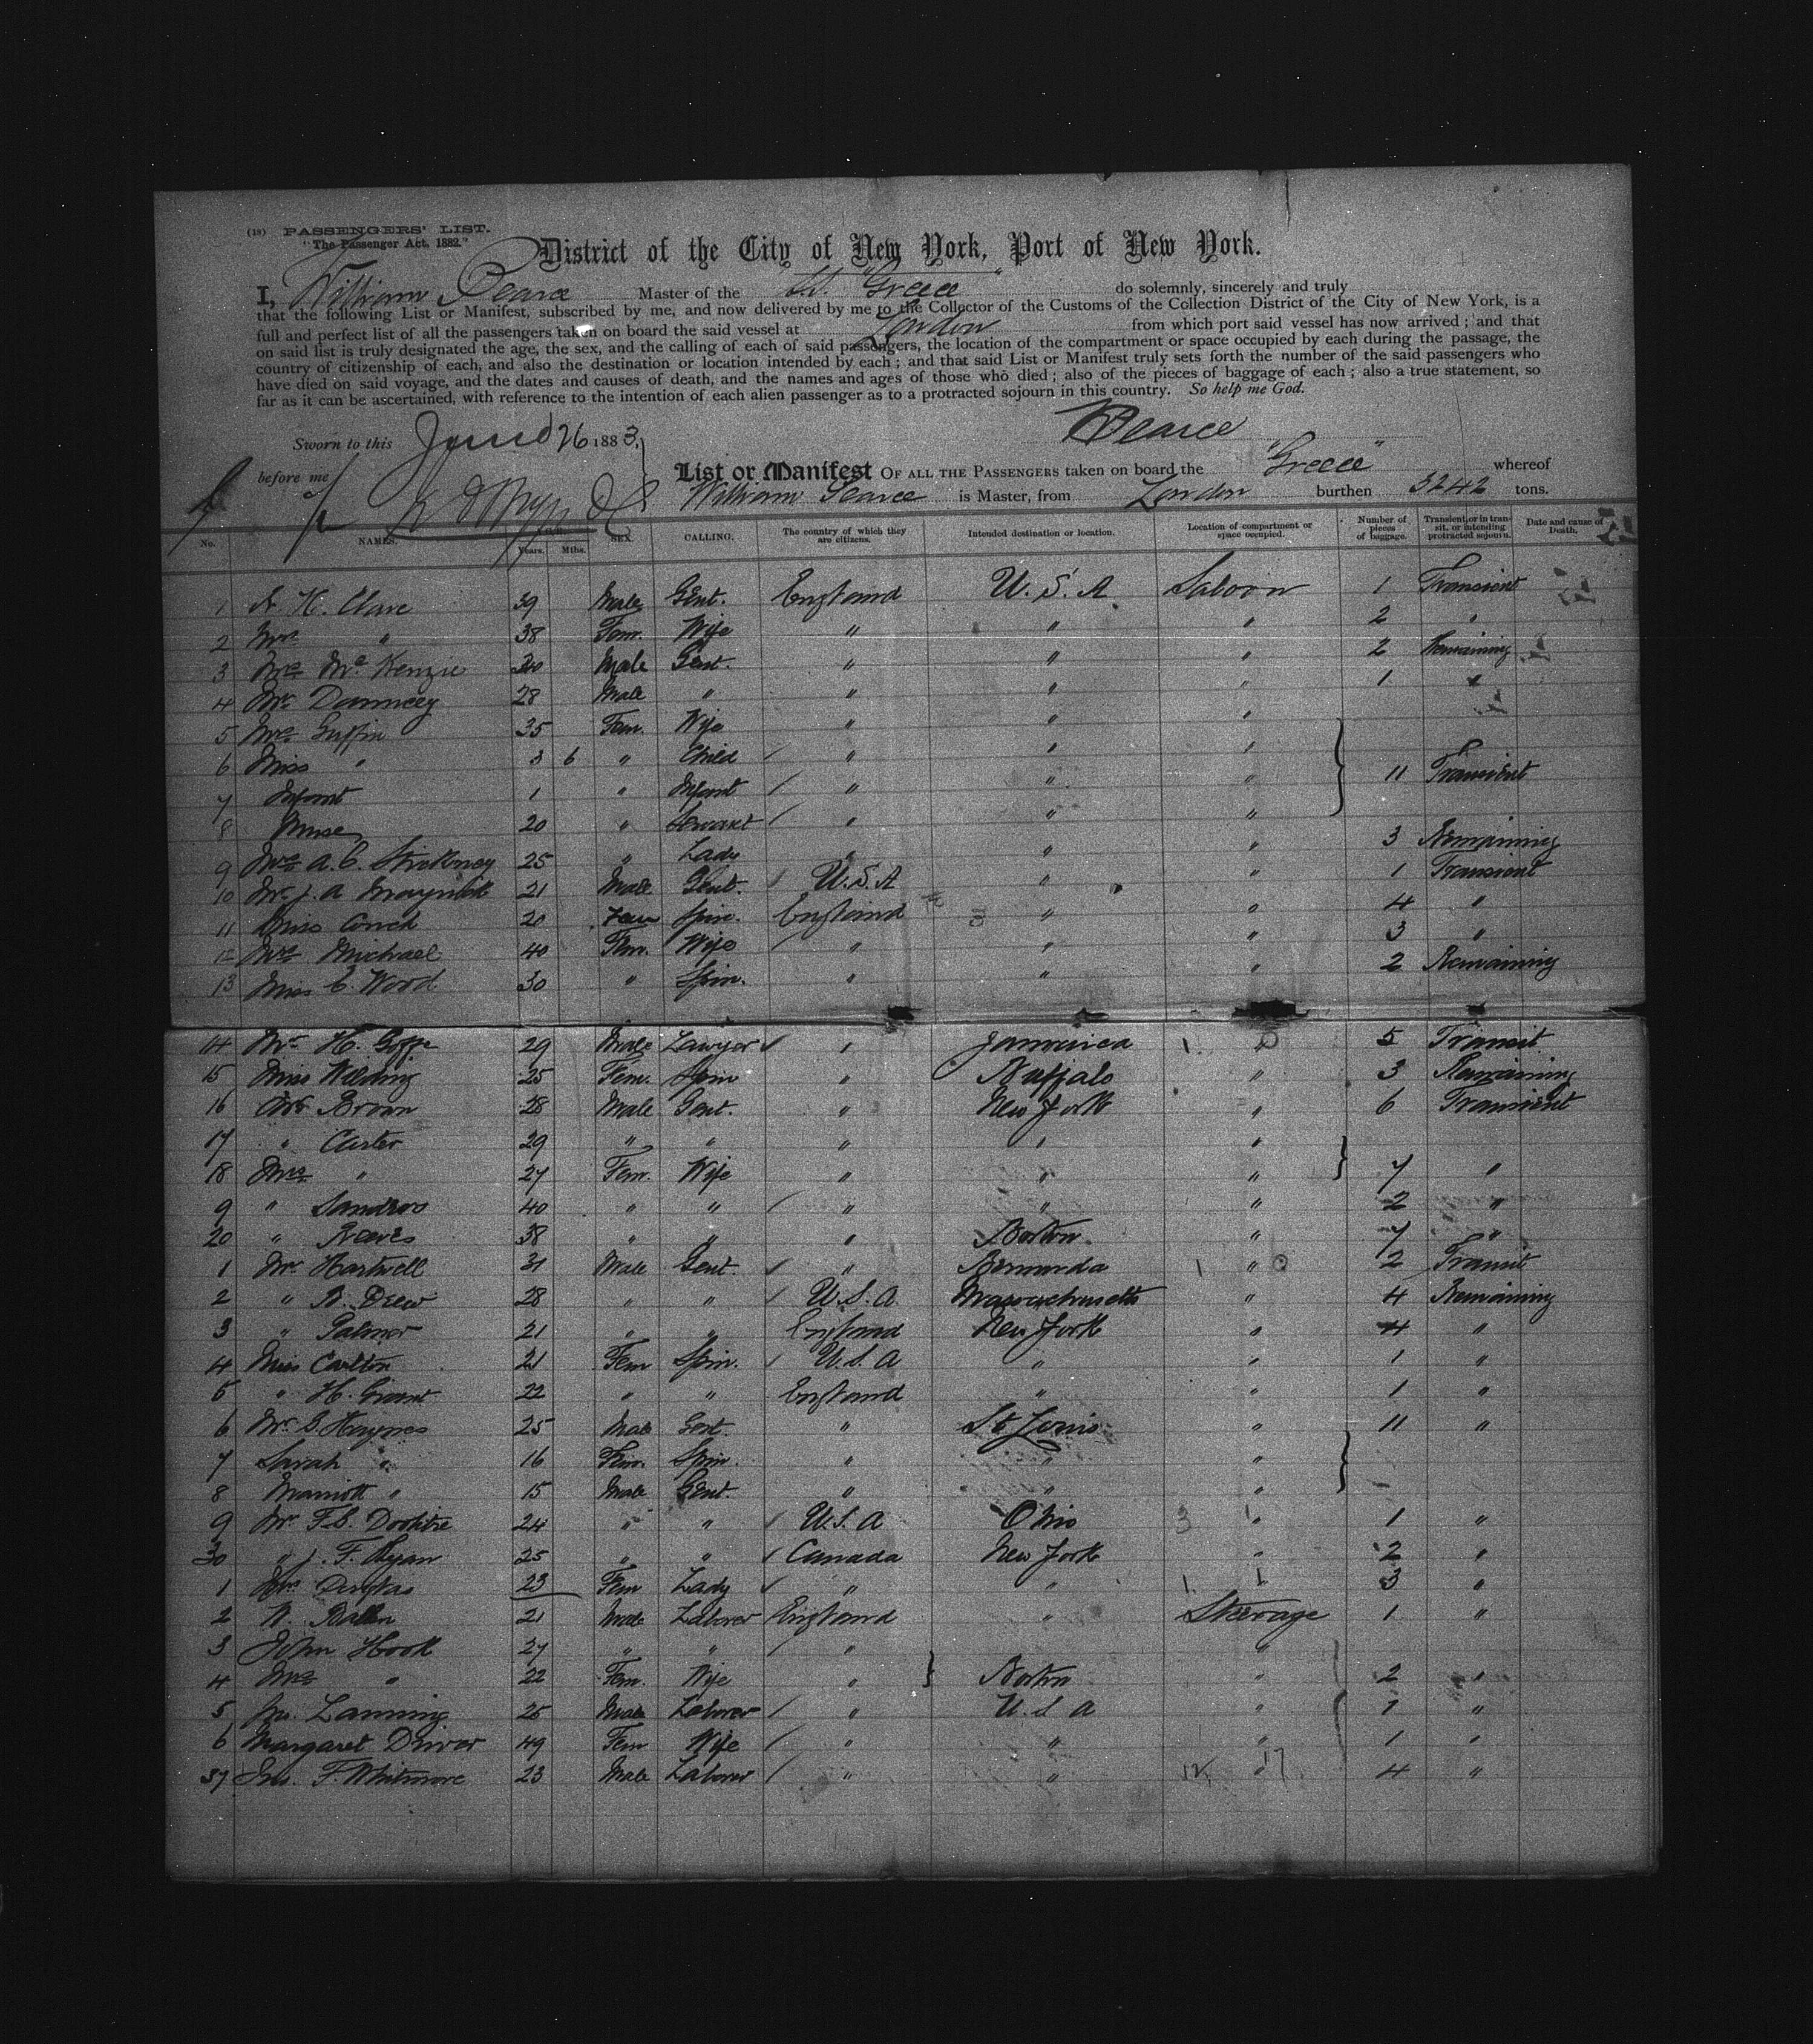 (18) PASSENGERS' LIST.
"The Passenger Act, 1882."
District of the City of New York, Port of New York.
I, William Pearce Master of the SS. "Greece" do solemnly, sincerely and truly
that the following List or Manifest, subscribed by me, and now delivered by me to the Collector of the Customs of the Collection District of the City of New York, is a
full and perfect list of all the passengers taken on board the said vessel at London from which port said vessel has now arrived; and that
on said list is truly designated the age, the sex, and the calling of each of said passengers, the location of the compartment or space occupied by each during the passage, the
country of citizenship of each, and also the destination or location intended by each; and that said List or Manifest truly sets forth the number of the said passengers who
have died on said voyage, and the dates and causes of death, and the names and ages of those who died; also of the pieces of baggage of each; also a true statement, so
far as it can be ascertained, with reference to the intention of each alien passenger as to a protracted sojourn in this country. So help me God.
WPearce
Sworn to this June 26 1883,
before me
List or Manifest OF ALL THE PASSENGERS taken on board the "Greece" whereof
William Pearce is Master, from London burthen 3242 tons.
No. NAMES. Years. Mths. SEX. CALLING. The country of which they are citizens. Intended destination or location. Location of compartment or space occupied. Number of pieces of baggage. Transient, or in transit, or intending protracted sojourn. Date and cause of Death.
1 A. H. Clare 39 Male Gent. England U.S.A. Saloon 1 Transient
2 Mrs " 38 Fem. Wife " " " 2 "
3 Mc Kenzie Male Gent. " " " 2 Remaining
4 Mr 28 Male " " " " 1 "
5 Mrs 35 Fem. Wife " " "
6 Miss " 3 6 " Child " " "
7 Infant 1 " Infant " " " 11 Transient
8 Nurse 20 " Servant " " "
9 Mrs A. C. 25 " Lady " " " 3 Remaining
10 Mr J. A. 21 Male Gent. U.S.A " " 1 Transient
11 Miss 20 Fem Spin. England " " 4 "
12 Mrs Michael 40 Fem. Wife " " " 3 "
13 Miss E. Wood 30 " Spin. " " " 2 Remaining
14 Mr H. Goffe 29 Male Lawyer " Jamaica " 5 Transit
15 Miss Wilding 25 Fem. Spin " Buffalo " 3 Remaining
16 Mr Brown 28 Male Gent. " New York " 6 Transient
17 " Carter 29 " " " " "
18 Mrs " 27 Fem. Wife " " " 7 "
9 " 40 " " " " " 2 "
20 " Reeves 38 " " " Boston " 7 "
1 Mr Hartwell 31 Male Gent. " Bermuda " 2 Transit
2 " B. Drew 28 " " U.S.A. Massachusetts " 4 Remaining
3 " Palmer 21 " " England New York " 4 "
4 Miss Carlton 21 Fem Spin. U.S.A " " 1 "
5 " H. Grant 22 " " England " " 1 "
6 Mr G. Haynes 25 Male Gent. " St Louis " 11 "
7 Sarah " 16 Fem. Spin. " " "
8 Marriott " 15 Male Gent. " " "
9 Mr F. S. 24 " " U.S.A Ohio " 1 "
30 " J. F. Ryan 25 " " Canada New York " 2 "
1 Mrs Douglas 23 Fem Lady " " 3 "
2 W. 21 Male Laborer England " Steerage 1 "
3 John Hook 27 " " " "
4 Mrs " 22 Fem. Wife " Boston " 2 "
5 Lanning 25 Male Laborer " U.S.A " 1 "
6 Margaret Driver 49 Fem Wife " " " 1 "
37 Jno. F. Whitmore 23 Male Laborer " " " 4 "